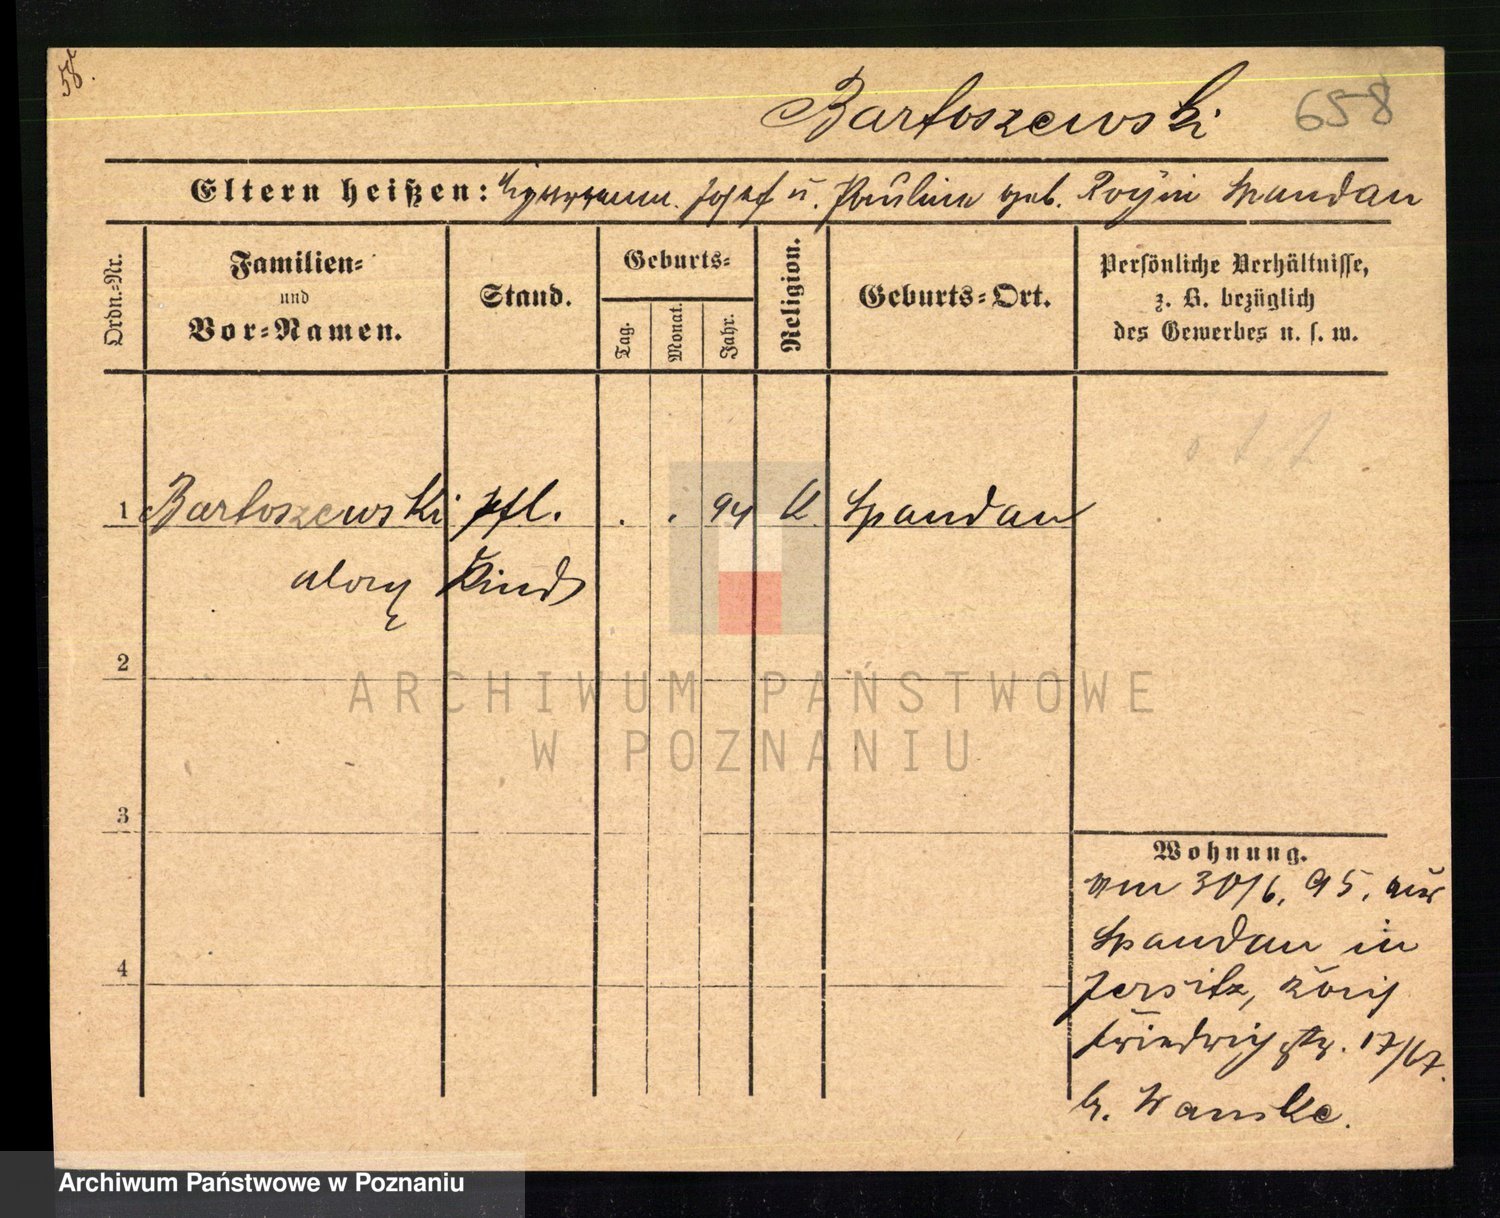 58.
Bartoszewski 658
Eltern heißen: Josef u. Pauline geb. Spandau
Ordn.-Nr.
Familien-
und
Vor-Namen.
Stand.
Geburts-
Tag.
Monat.
Jahr.
Religion.
Geburts-Ort.
Persönliche Verhältnisse,
z. B. bezüglich
des Gewerbes u. s. w.
1 Bartoszewski pfl. . . 94 K. Spandau
Kind
2
ARCHIWUM PAŃSTWOWE
W POZNANIU
3
4
Wohnung.
am 30/6. 95. aus
Spandau in
Jersitz,
Friedrichstr. 17/67.
b. Wanske.
Archiwum Państwowe w Poznaniu